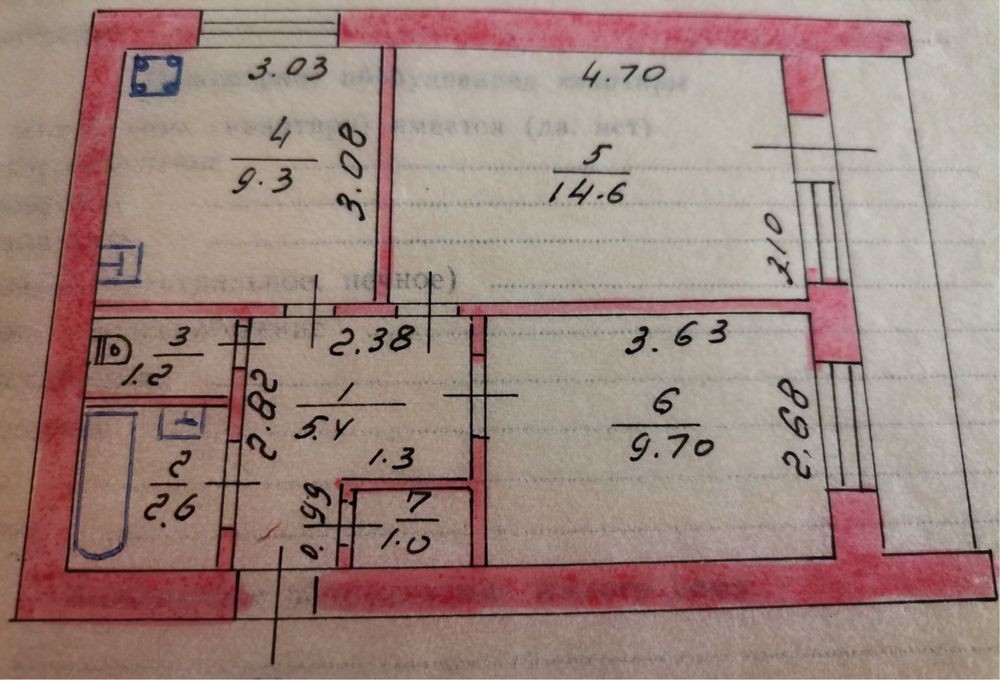 3.03
4.70
4
9.3
3.08
5
14.6
210
3
1.2
2.38
3.63
2.82
1
5.4
6
9.70
2.68
1.3
2
2.6
0.99
7
1.0
(да. нет)